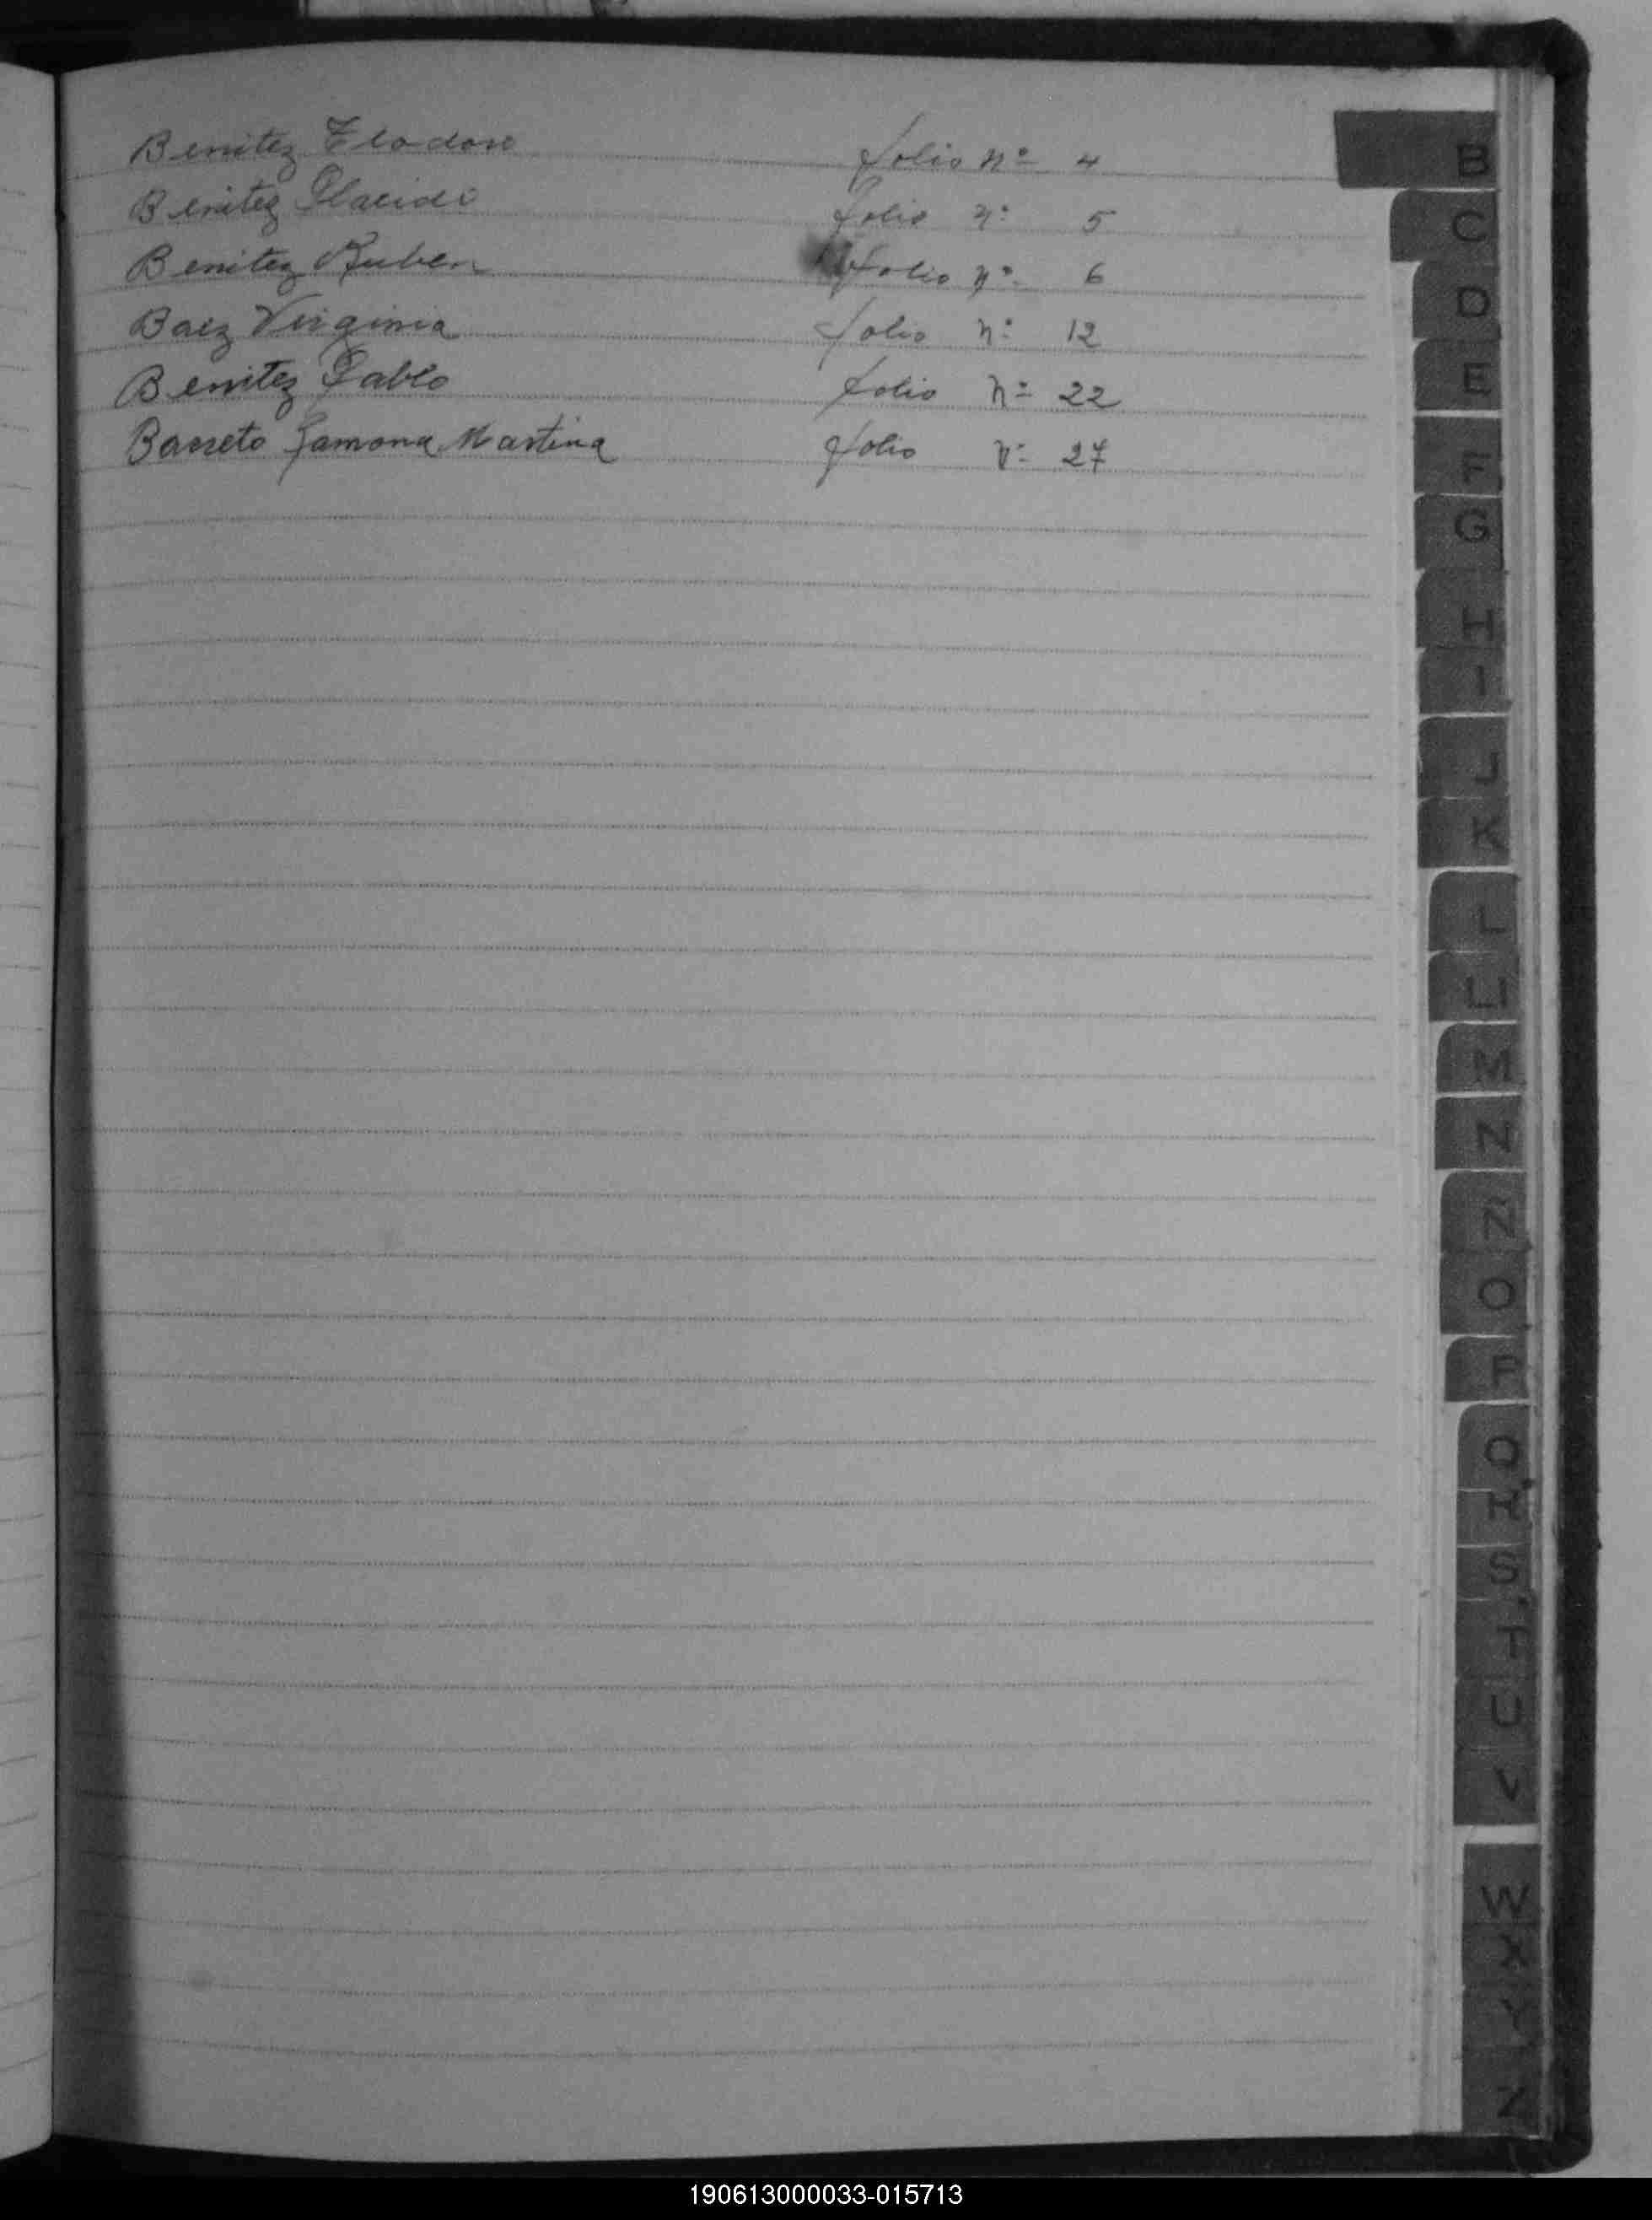 Benitez Teodoro folio nº 4
Benitez Placido folio nº 5
Benitez Ruben folio nº 6
Baez Virginia folio nº 12
Benitez Pablo folio nº 22
Barreto Ramona Martina folio nº 27
B
C
D
E
F
G
H
I
J
K
L
LL
M
N
Ñ
O
P
Q
R
S
T
U
V
W
X
Y
Z
190613000033-015713